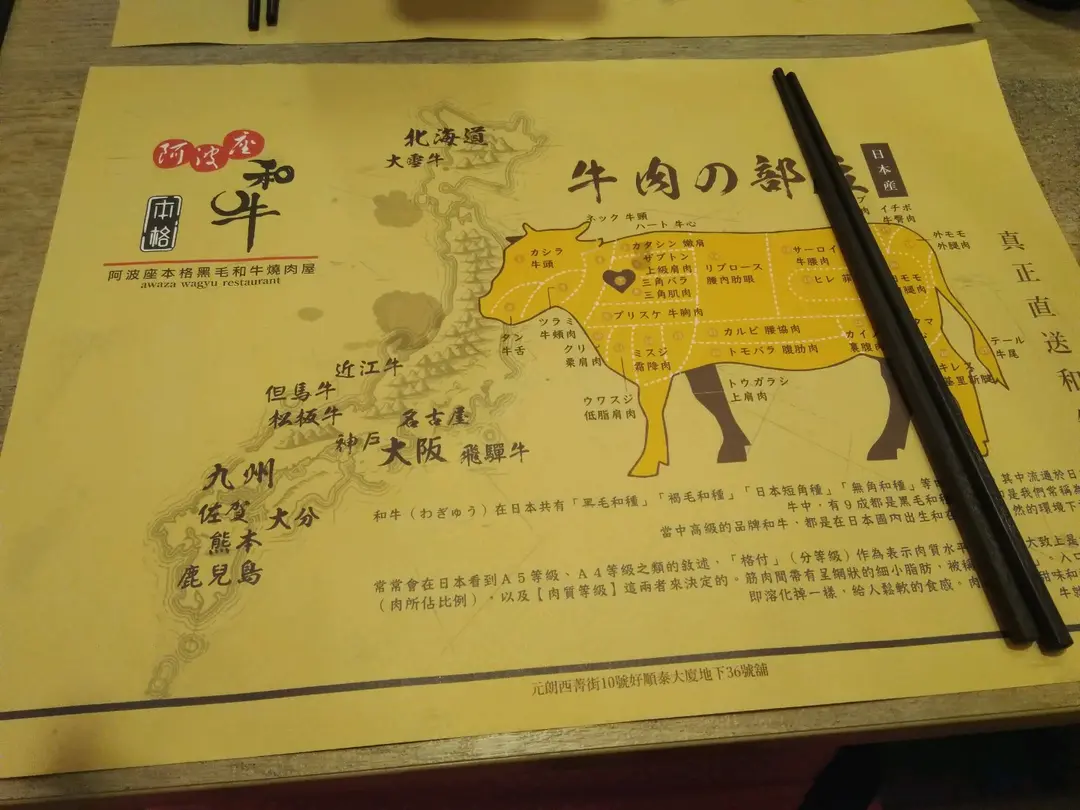 阿波座
和牛
本格
阿波座本格黑毛和牛燒肉屋
awaza wagyu restaurant
北海道
大雪牛
近江牛
但馬牛
松板牛
神戶
名古屋
大阪
飛驒牛
九州
佐賀
大分
熊本
鹿兒島
牛肉の部
日本産
ネック 牛頸
ハート 牛心
イチボ
牛臀肉
外モモ
外腿肉
カシラ
牛頭
カタシン 嫩肩
ザブトン
上級肩肉
三角バラ
三角肌肉
リブロース
腰內肋眼
サーロイ
牛腰肉
ヒレ
ブリスケ 牛胸肉
ツラミ
牛頰肉
タン
牛舌
クリ
栗肩肉
ミスジ
霜降肉
カルビ 腰協肉
トモバラ 腹肋肉
トウガラシ
上肩肉
ウワスジ
低脂肩肉
テール
牛尾
真正直送和
和牛（わぎゅう）在日本共有「黑毛和種」「褐毛和種」「日本短角種」「無角和種」等
其中流通於日
牛中，有９成都是黑毛和
是我們常稱為
當中高級的品牌和牛，都是在日本國內出生和
然的環境下
常常會在日本看到Ａ５等級、Ａ４等級之類的敘述，「格付」（分等級）作為表示肉質水平
大致上是
（肉所佔比例），以及【肉質等級】這兩者來決定的。筋肉間帶有呈網狀的細小脂肪，被稱
入口
即溶化掉一樣，給人鬆軟的食感，肉
甜味和
元朗西菁街10號好順泰大廈地下36號舖